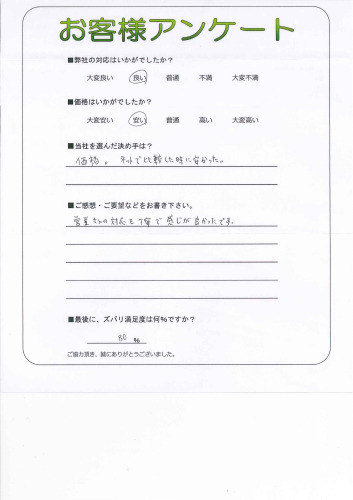 お客様アンケート
■弊社の対応はいかがでしたか？
大変良い 良い 普通 不満 大変不満
■価格はいかがでしたか？
大変安い 安い 普通 高い 大変高い
■当社を選んだ決め手は？
価格。ネットで比較した時に安かった。
■ご感想・ご要望などをお書き下さい。
営業さんの対応も丁寧で感じが良かったです。
■最後に、ズバリ満足度は何%ですか？
80 %
ご協力頂き、誠にありがとうございました。